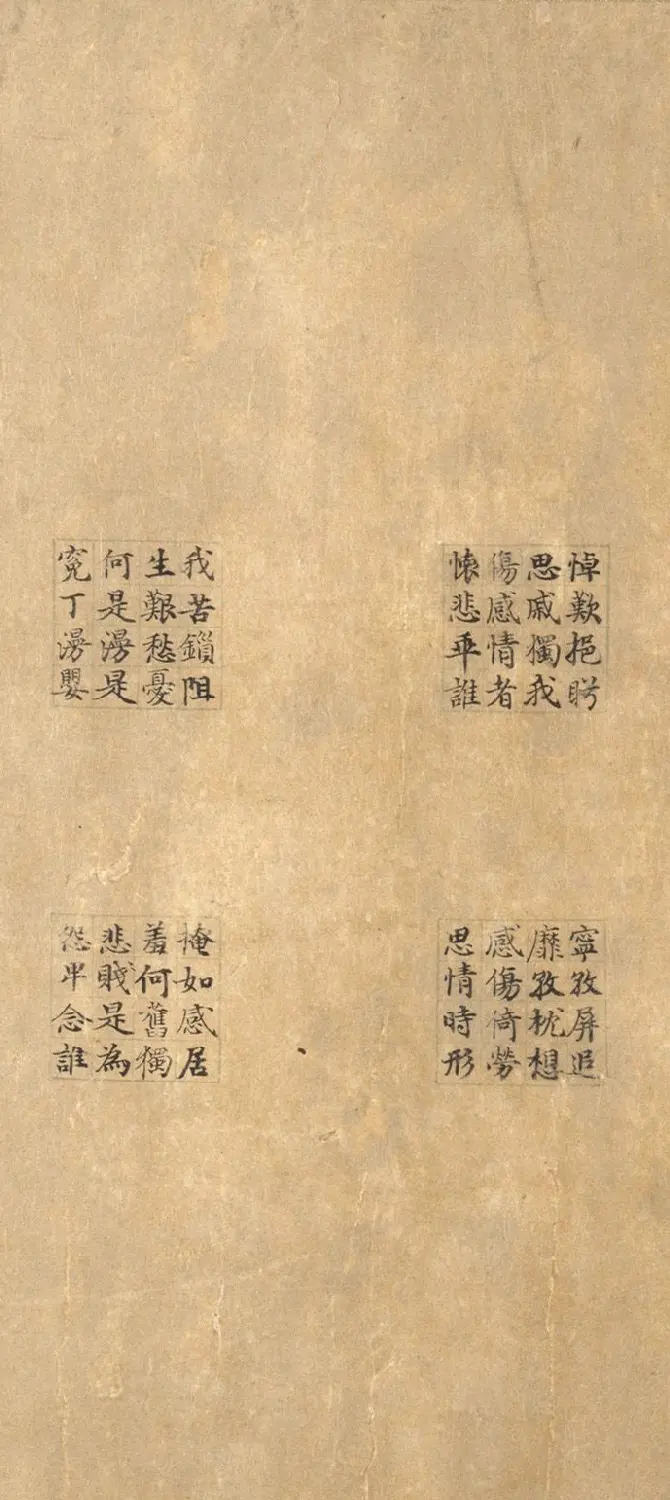 悼歎挹眄
思戚獨我
傷感情者
懷悲乎誰
我苦鎖阻
生艱愁憂
何是漫是
冤丁漫嬰
寧孜屏追
靡孜枕想
感傷倚勞
思情時形
掩如感居
羞何舊獨
悲賤是為
怨半念誰